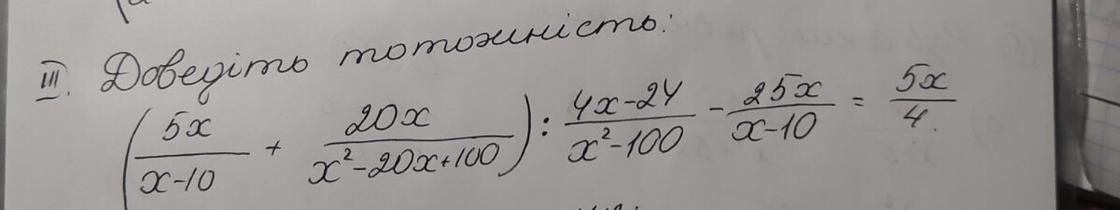 III. Доведіть тотожність:
(5x/(x-10) + 20x/(x²-20x+100)) : (4x-24)/(x²-100) - 25x/(x-10) = 5x/4.